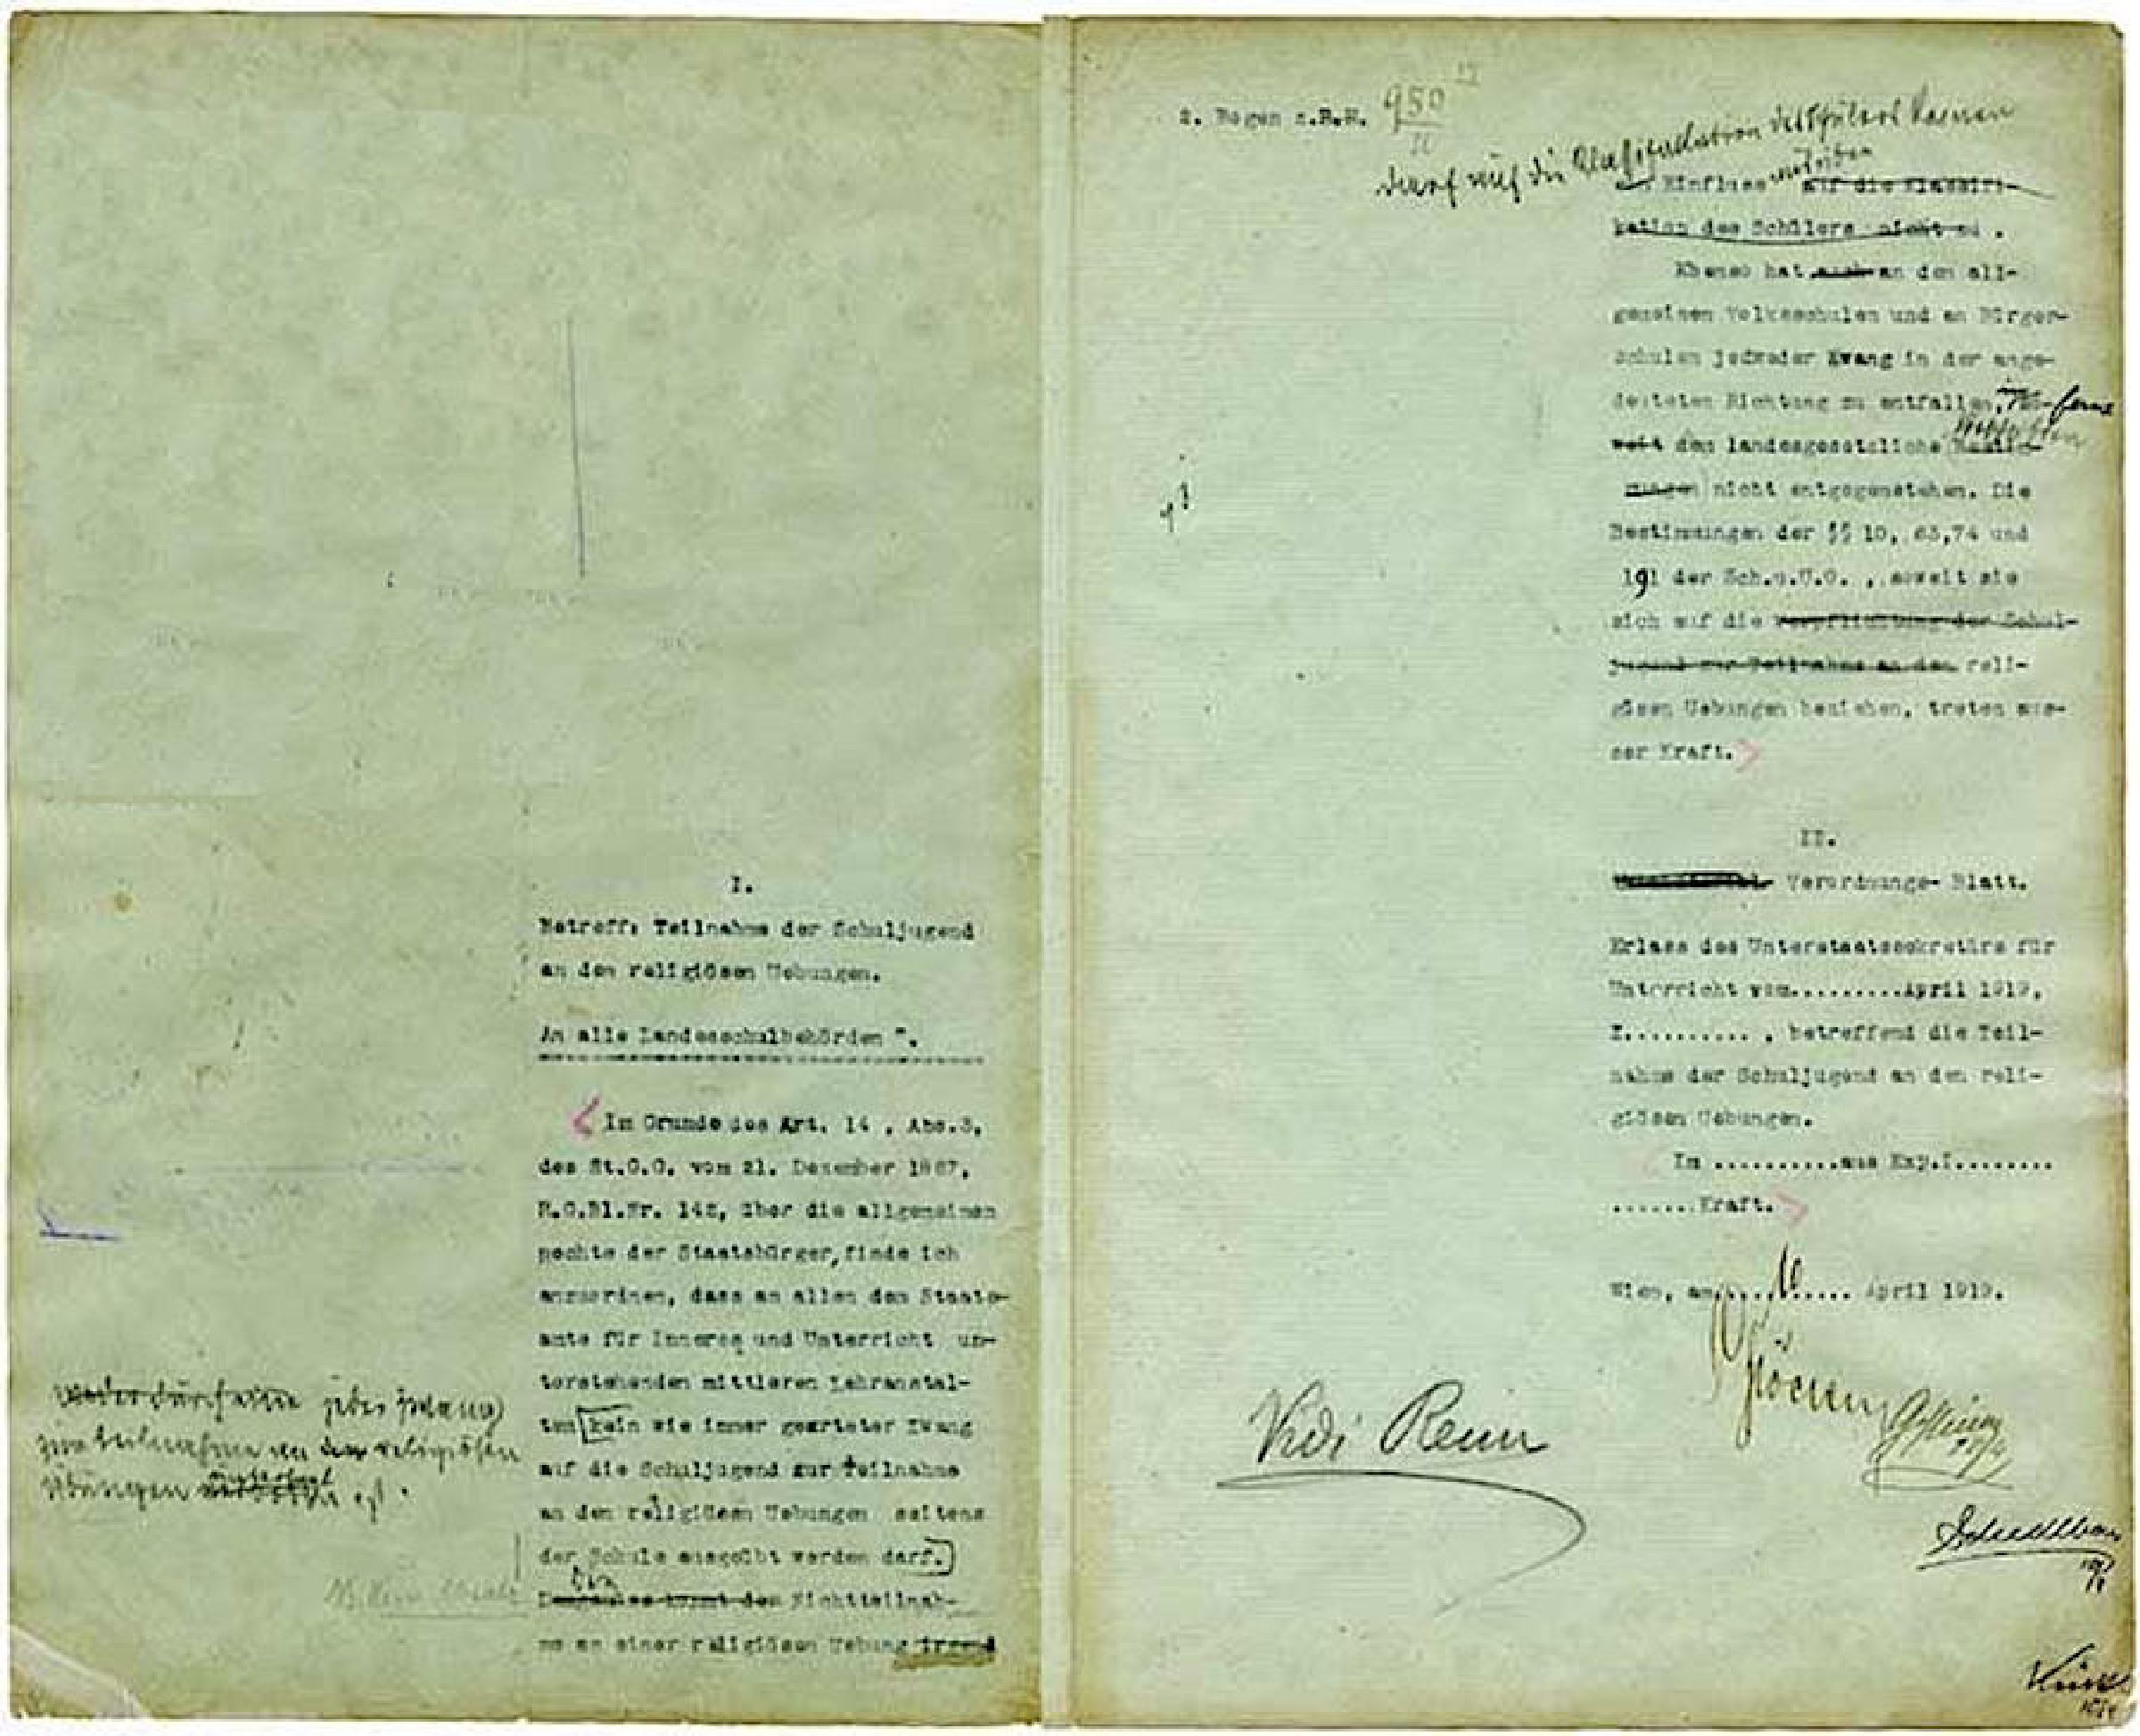 I.
Betreff: Teilnahme der Schuljugend
an den religiösen Uebungen.
An alle Landesschulbehörden ".
Im Grunde des Art. 14 , Abs.3,
des St.G.G. vom 21. Dezember 1867,
R.G.Bl.Nr. 142, über die allgemeinen
Rechte der Staatsbürger, finde ich
anzuordnen, dass an allen dem Staats-
amte für Inneres und Unterricht un-
terstehenden mittleren Lehranstal-
ten kein wie immer gearteter Zwang
auf die Schuljugend zur Teilnahme
an den religiösen Uebungen seitens
der Schule ausgeübt werden darf.
Die
kommt der Nichtteilnah-
me an einer religiösen Uebung irgend
jeder Zwang
zur Teilnahme an den religiösen
Übungen ist .
2. Bogen z.B.H. 950
darf auf die Klassifikation des Schülers keinen
Einfluss auf die Klassifi-
kation des Schülers nicht zu .
Ebenso hat auch an den all-
gemeinen Volksschulen und an Bürger-
schulen jedweder Zwang in der ange-
deuteten Richtung zu entfallen, in-soferne
weit dem landesgesetzliche Bestim-
mungen nicht entgegenstehen. Die
Bestimmungen der §§ 10, 63,74 und
191 der Sch.u.U.O. , soweit sie
sich auf die Verpflichtung der Schul-
jugend zur Teilnahme an den reli-
giösen Uebungen beziehen, treten aus-
ser Kraft.
II.
Verordnungs- Blatt.
Erlass des Unterstaatssekretärs für
Unterricht vom..........April 1919,
Z........... , betreffend die Teil-
nahme der Schuljugend an den reli-
giösen Uebungen.
Im ..........aus Exp.I........
.......Kraft.
Wien, am 10 April 1919.
Glöckel
Vidi Renner